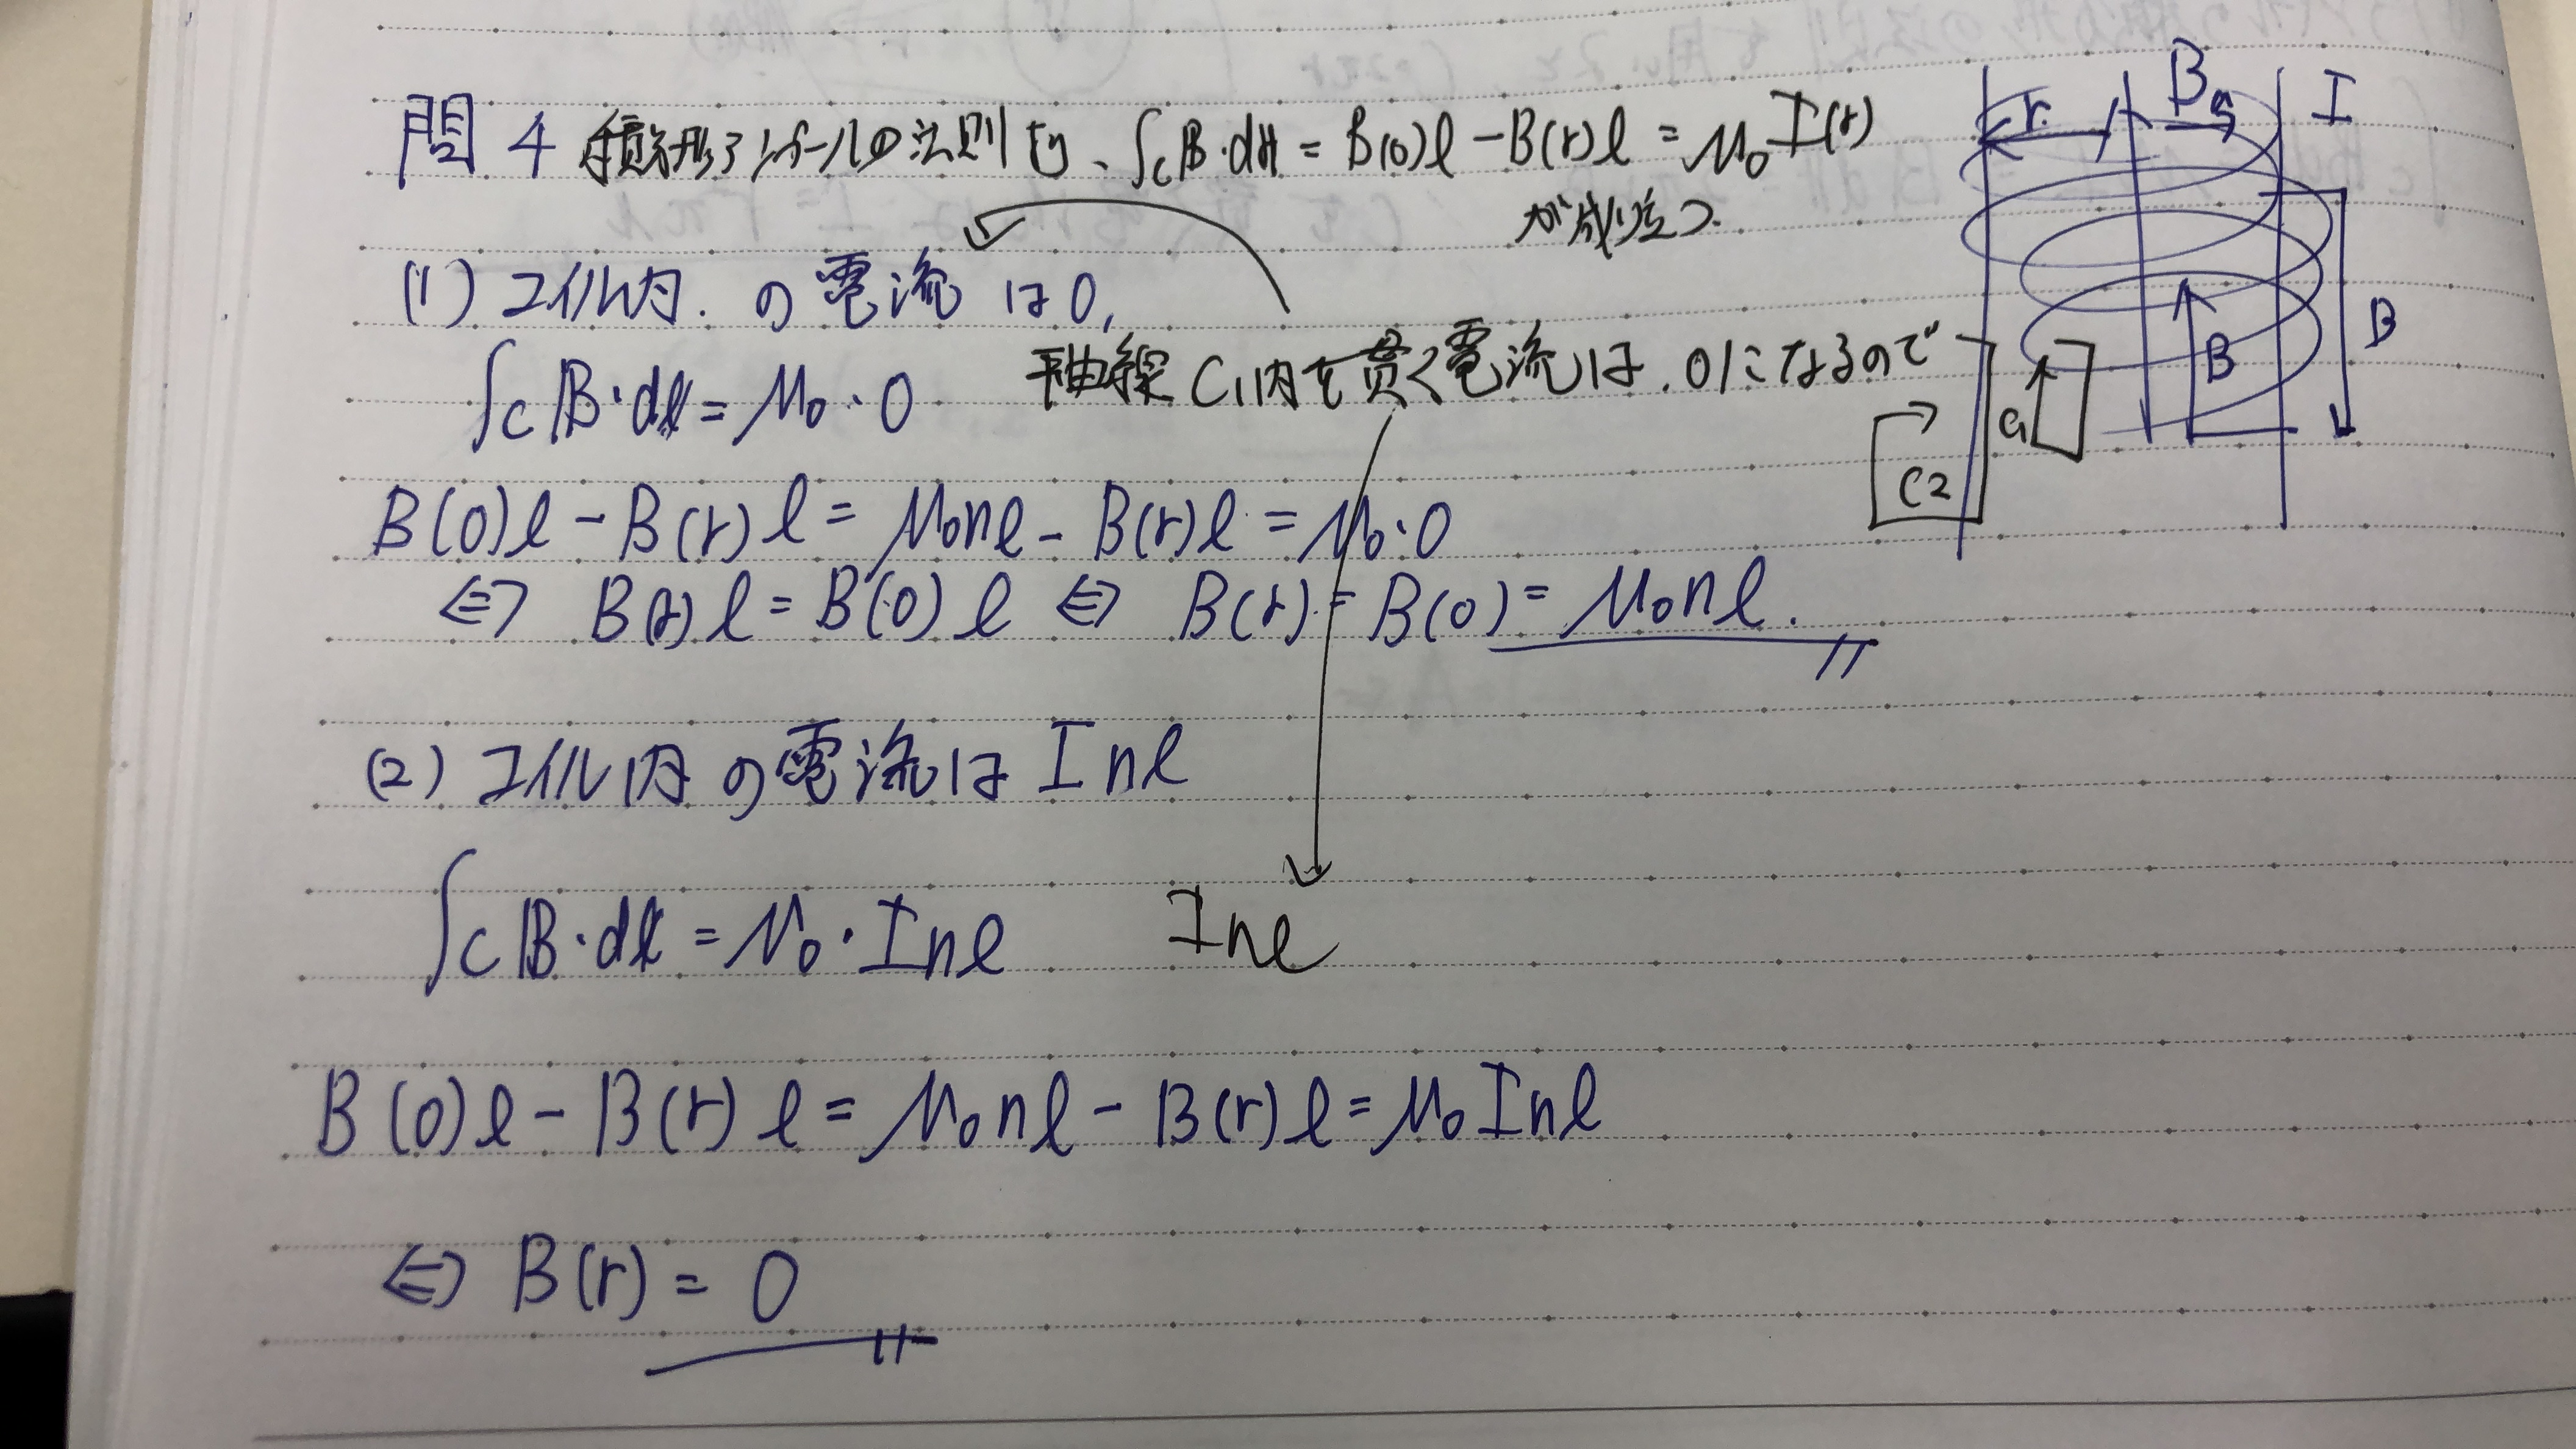 問4 積分形アンペールの法則より、∫c B・dl = B(0)l - B(r)l = μ₀I(r)
が成り立つ.
(1) コイル内. の電流は0,
∫c B・dl = μ₀・0
軸線C₁内を貫く電流は.0になるので
B(0)l - B(r)l = μ₀nl - B(r)l = μ₀・0
⇔ B(r)l = B(0)l ⇔ B(r) = B(0) = μ₀nl.
(2) コイル内の電流は Inl
∫c B・dl = μ₀・Inl
Inl
B(0)l - B(r)l = μ₀nl - B(r)l = μ₀Inl
⇔ B(r) = 0
r
B
I
B
B
C₁
C2